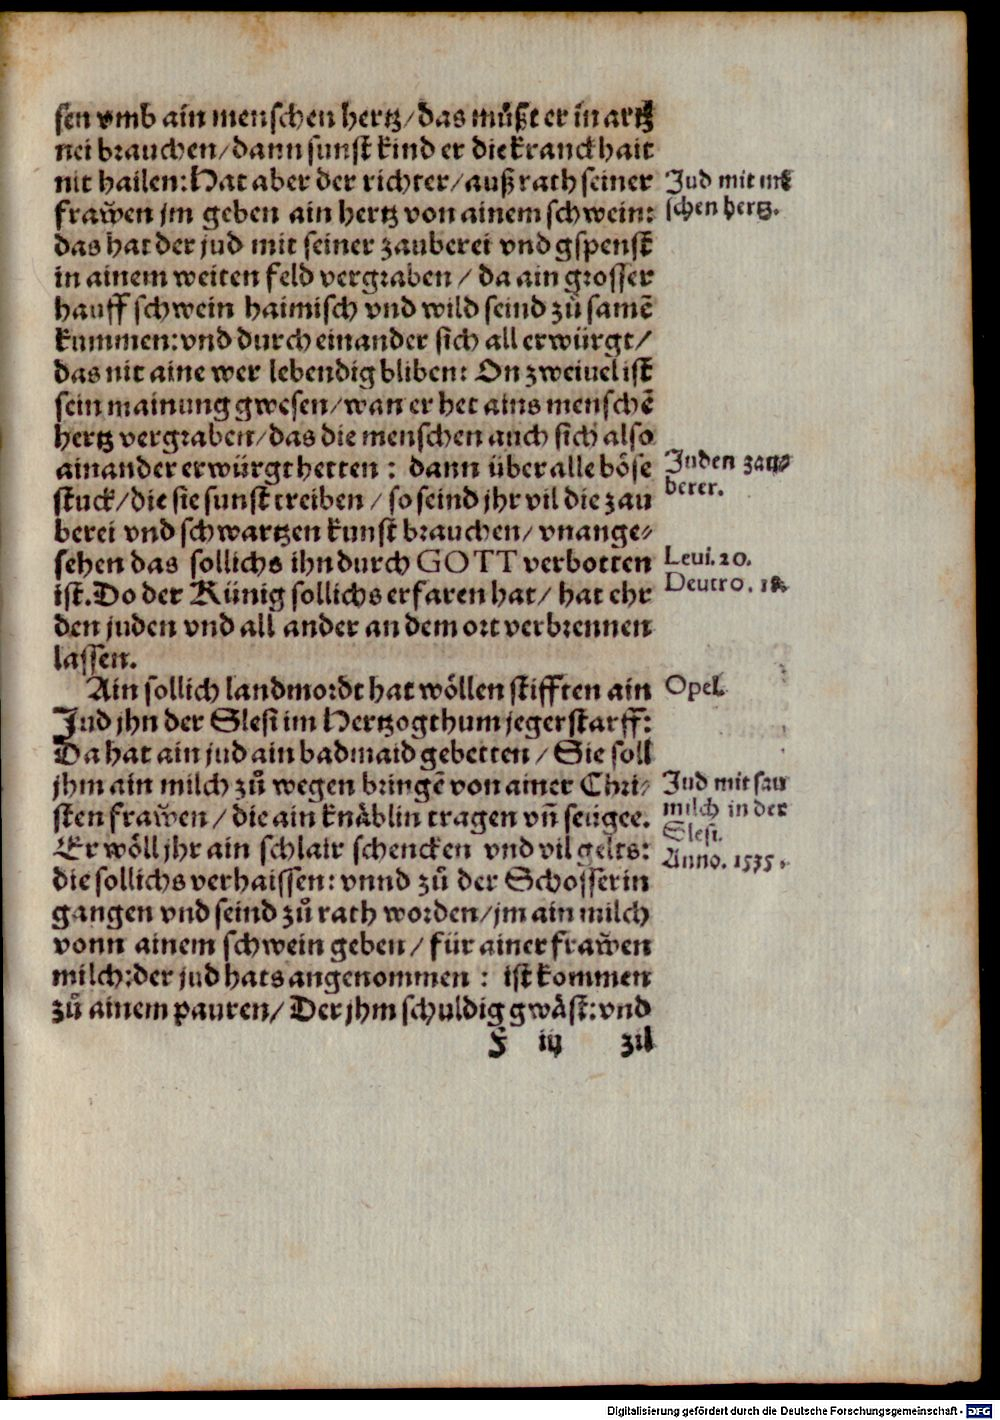 sen vmb ain menschen hertz/das müßt er in artz
nei brauchen/dann sunst kind er die kranckhait
nit hailen:Hat aber der richter/auß rath seiner
frawen jm geben ain hertz von ainem schwein:
das hat der jud mit seiner zauberei vnd gspenst
in ainem weiten feld vergraben/da ain grosser
hauff schwein haimisch vnd wild seind zů samē
kummen:vnd durch einander sich all erwürgt/
das nit aine wer lebendig bliben: On zweiuel ist
sein mainung gwesen/wan er het ains menschē
hertz vergraben/das die menschen auch sich also
ainander erwürgt hetten: dann über alle böse
stuck/die sie sunst treiben/so seind jhr vil die zau
berei vnd schwartzen kunst brauchen/vnange⸗
sehen das sollichs ihn durch GOTT verbotten
ist.Do der Künig sollichs erfaren hat/hat ehr
den juden vnd all ander an dem ort verbrennen
lassen.
Ain sollich landmordt hat wöllen stifften ain
Jud jhn der Slesi im Hertzogthum jegerstarff:
Da hat ain jud ain badmaid gebetten/Sie soll
jhm ain milch zů wegen bringē von ainer Chri⸗
sten frawen/die ain knäblin tragen vñ seugee.
Er wöll jhr ain schlair schencken vnd vil gelts:
die sollichs verhaissen:vnnd zů der Schosserin
gangen vnd seind zů rath worden/jm ain milch
vonn ainem schwein geben/für ainer frawen
milch:der jud hats angenommen: ist kommen
zů ainem pauren/Der jhm schuldig gwäst:vnd
F iij zil
Jud mit mē
schen hertz.
Juden zau⸗
berer.
Levi.20.
Deutro.18.
Opel.
Jud mit sau
milch in der
Slesi.
Anno.1535.
Digitalisierung gefördert durch die Deutsche Forschungsgemeinschaft - DFG